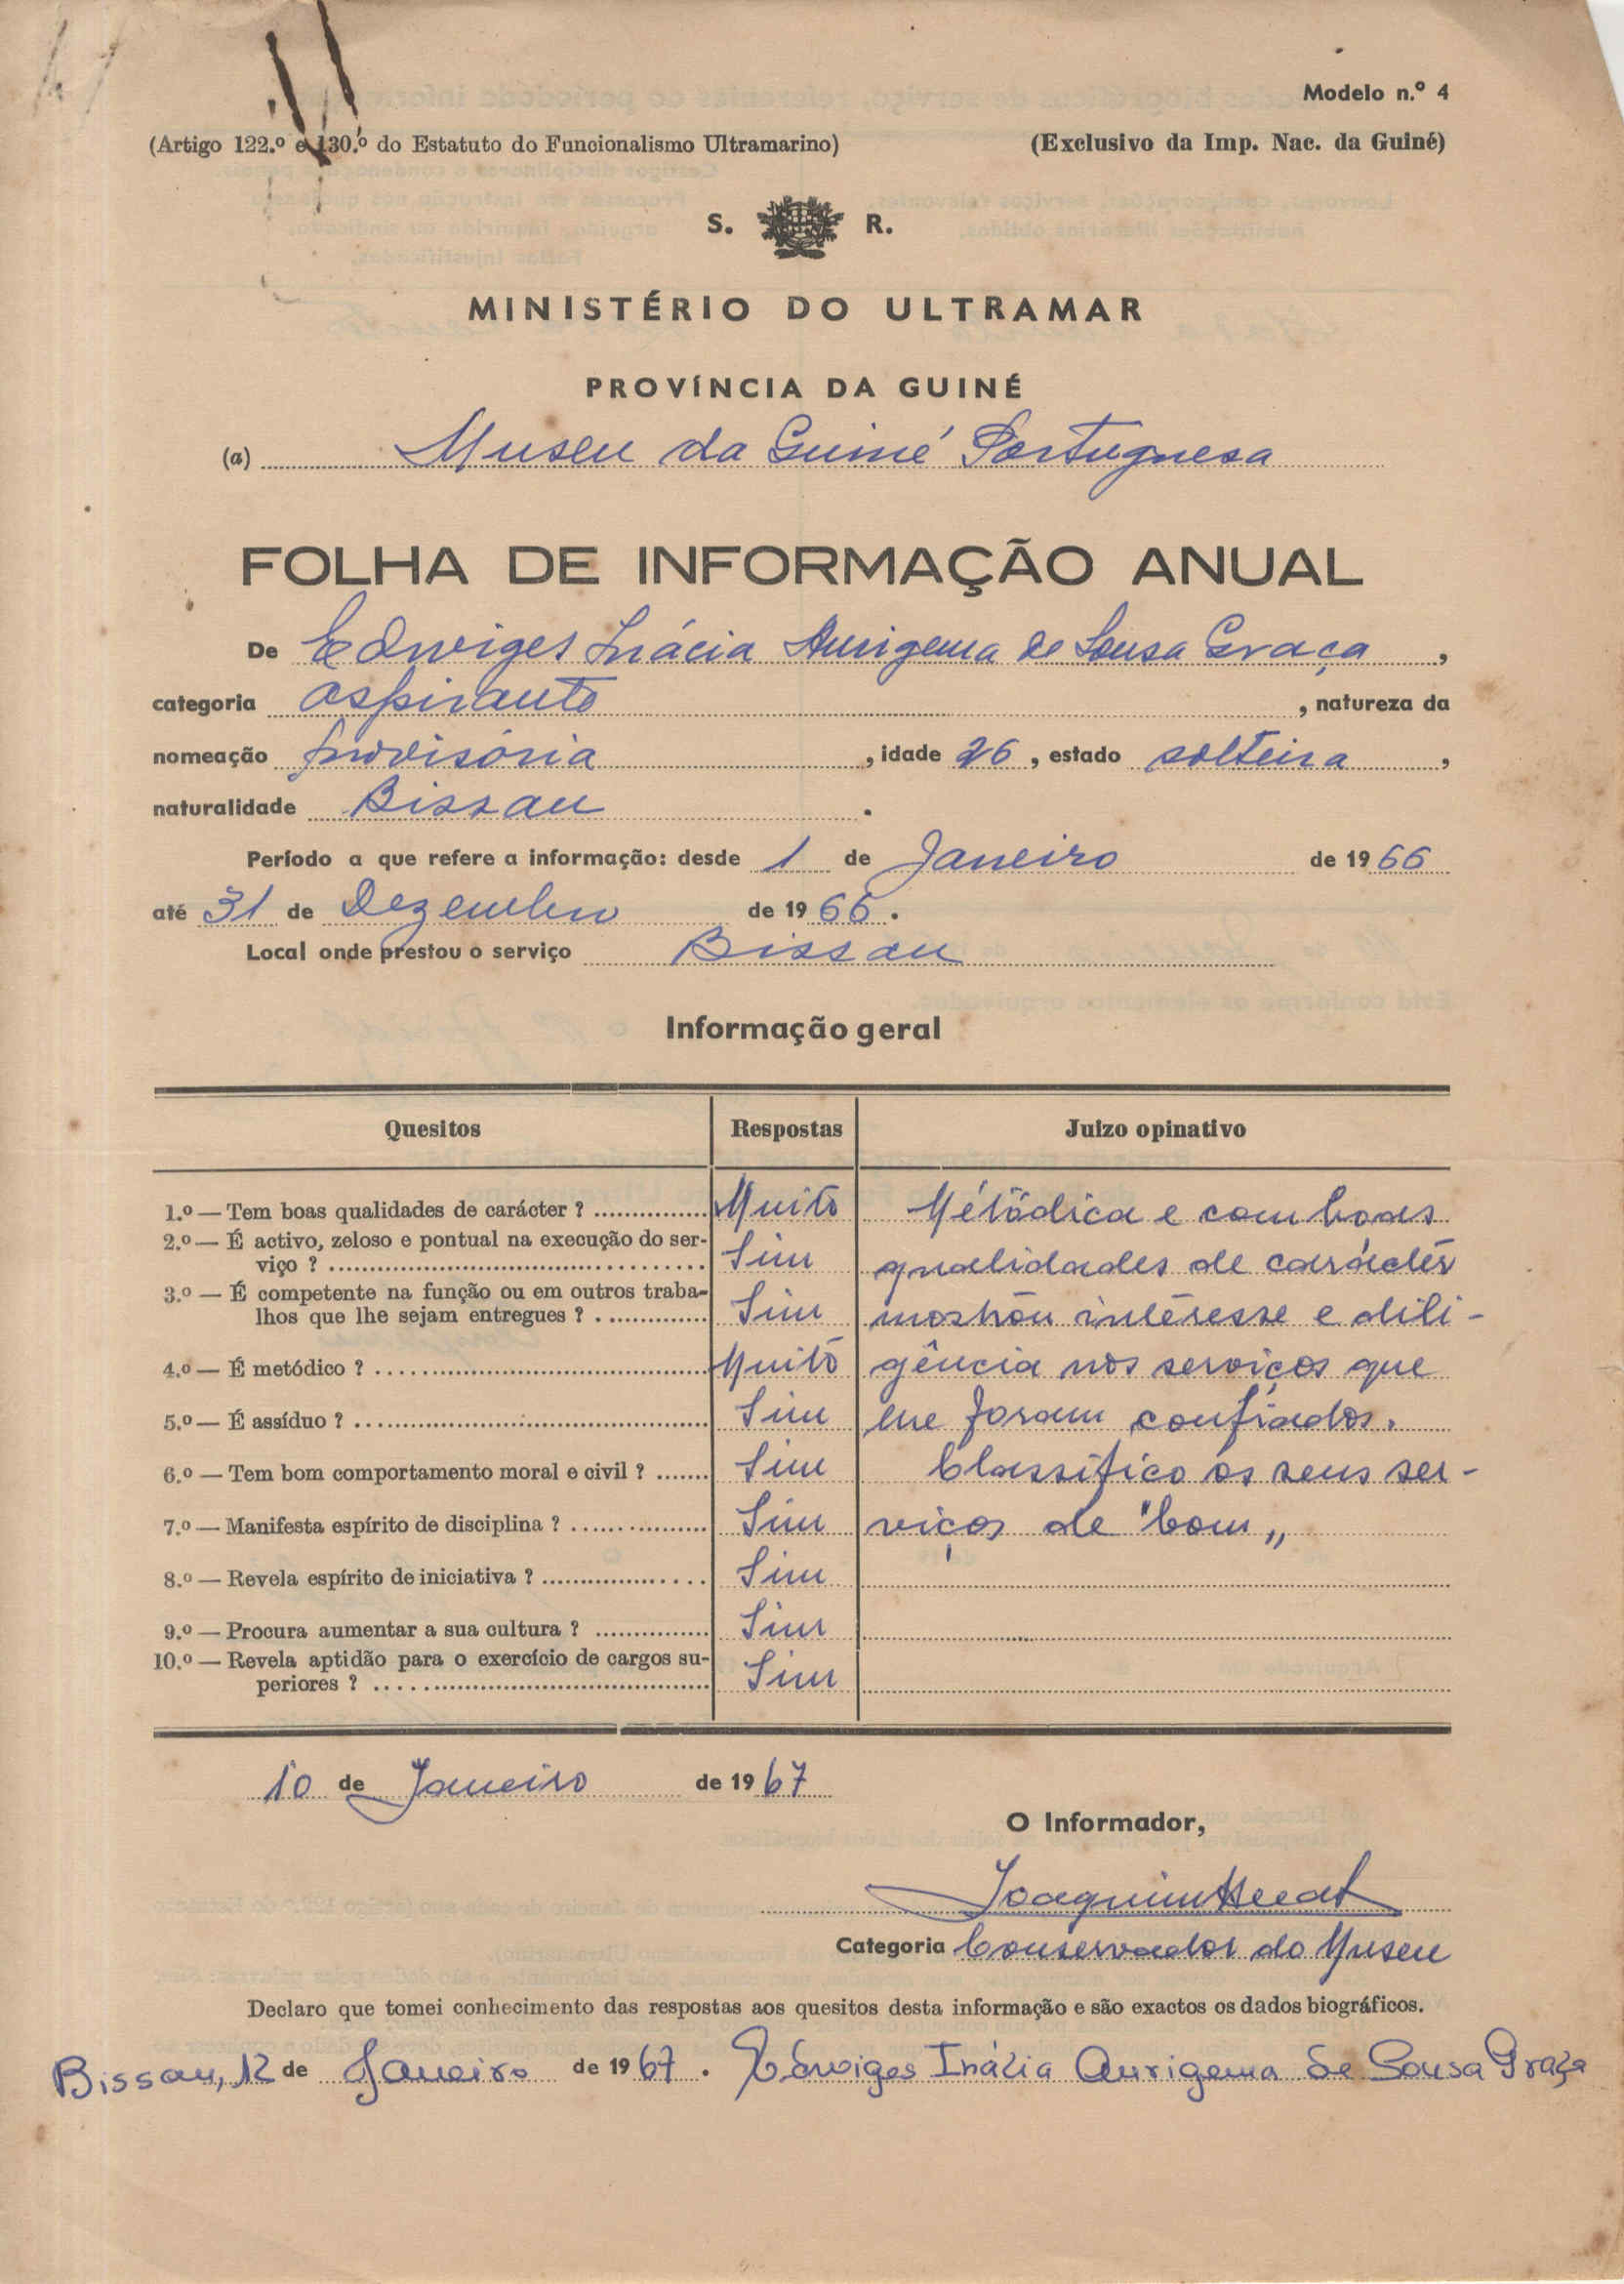 Modelo n.º 4
(Artigo 122.º e 130.º do Estatuto do Funcionalismo Ultramarino) (Exclusivo da Imp. Nac. da Guiné)
S. R.
MINISTÉRIO DO ULTRAMAR
PROVÍNCIA DA GUINÉ
(a) Museu da Guiné Portuguesa
FOLHA DE INFORMAÇÃO ANUAL
De Edwiges Inácia Aurigema de Sousa Graça,
categoria aspirante, natureza da
nomeação provisória, idade 26, estado solteira,
naturalidade Bissau.
Período a que refere a informação: desde 1 de Janeiro de 1966
até 31 de Dezembro de 1966.
Local onde prestou o serviço Bissau
Informação geral
Quesitos Respostas Juízo opinativo
1.º — Tem boas qualidades de carácter? Muito Metódica e com boas
2.º — É activo, zeloso e pontual na execução do ser-
viço? Sim qualidades de carácter
3.º — É competente na função ou em outros traba-
lhos que lhe sejam entregues? Sim mostrou interesse e dili-
4.º — É metódico? Muito gência nos serviços que
5.º — É assíduo? Sim lhe foram confiados.
6.º — Tem bom comportamento moral e civil? Sim Classifico os seus ser-
7.º — Manifesta espírito de disciplina? Sim viços de "bom„
8.º — Revela espírito de iniciativa? Sim
9.º — Procura aumentar a sua cultura? Sim
10.º — Revela aptidão para o exercício de cargos su-
periores? Sim
10 de Janeiro de 1967
O Informador,
Joaquim
Categoria Conservador do Museu
Declaro que tomei conhecimento das respostas aos quesitos desta informação e são exactos os dados biográficos.
Bissau, 12 de Janeiro de 1967. Edwiges Inácia Aurigema de Sousa Graça